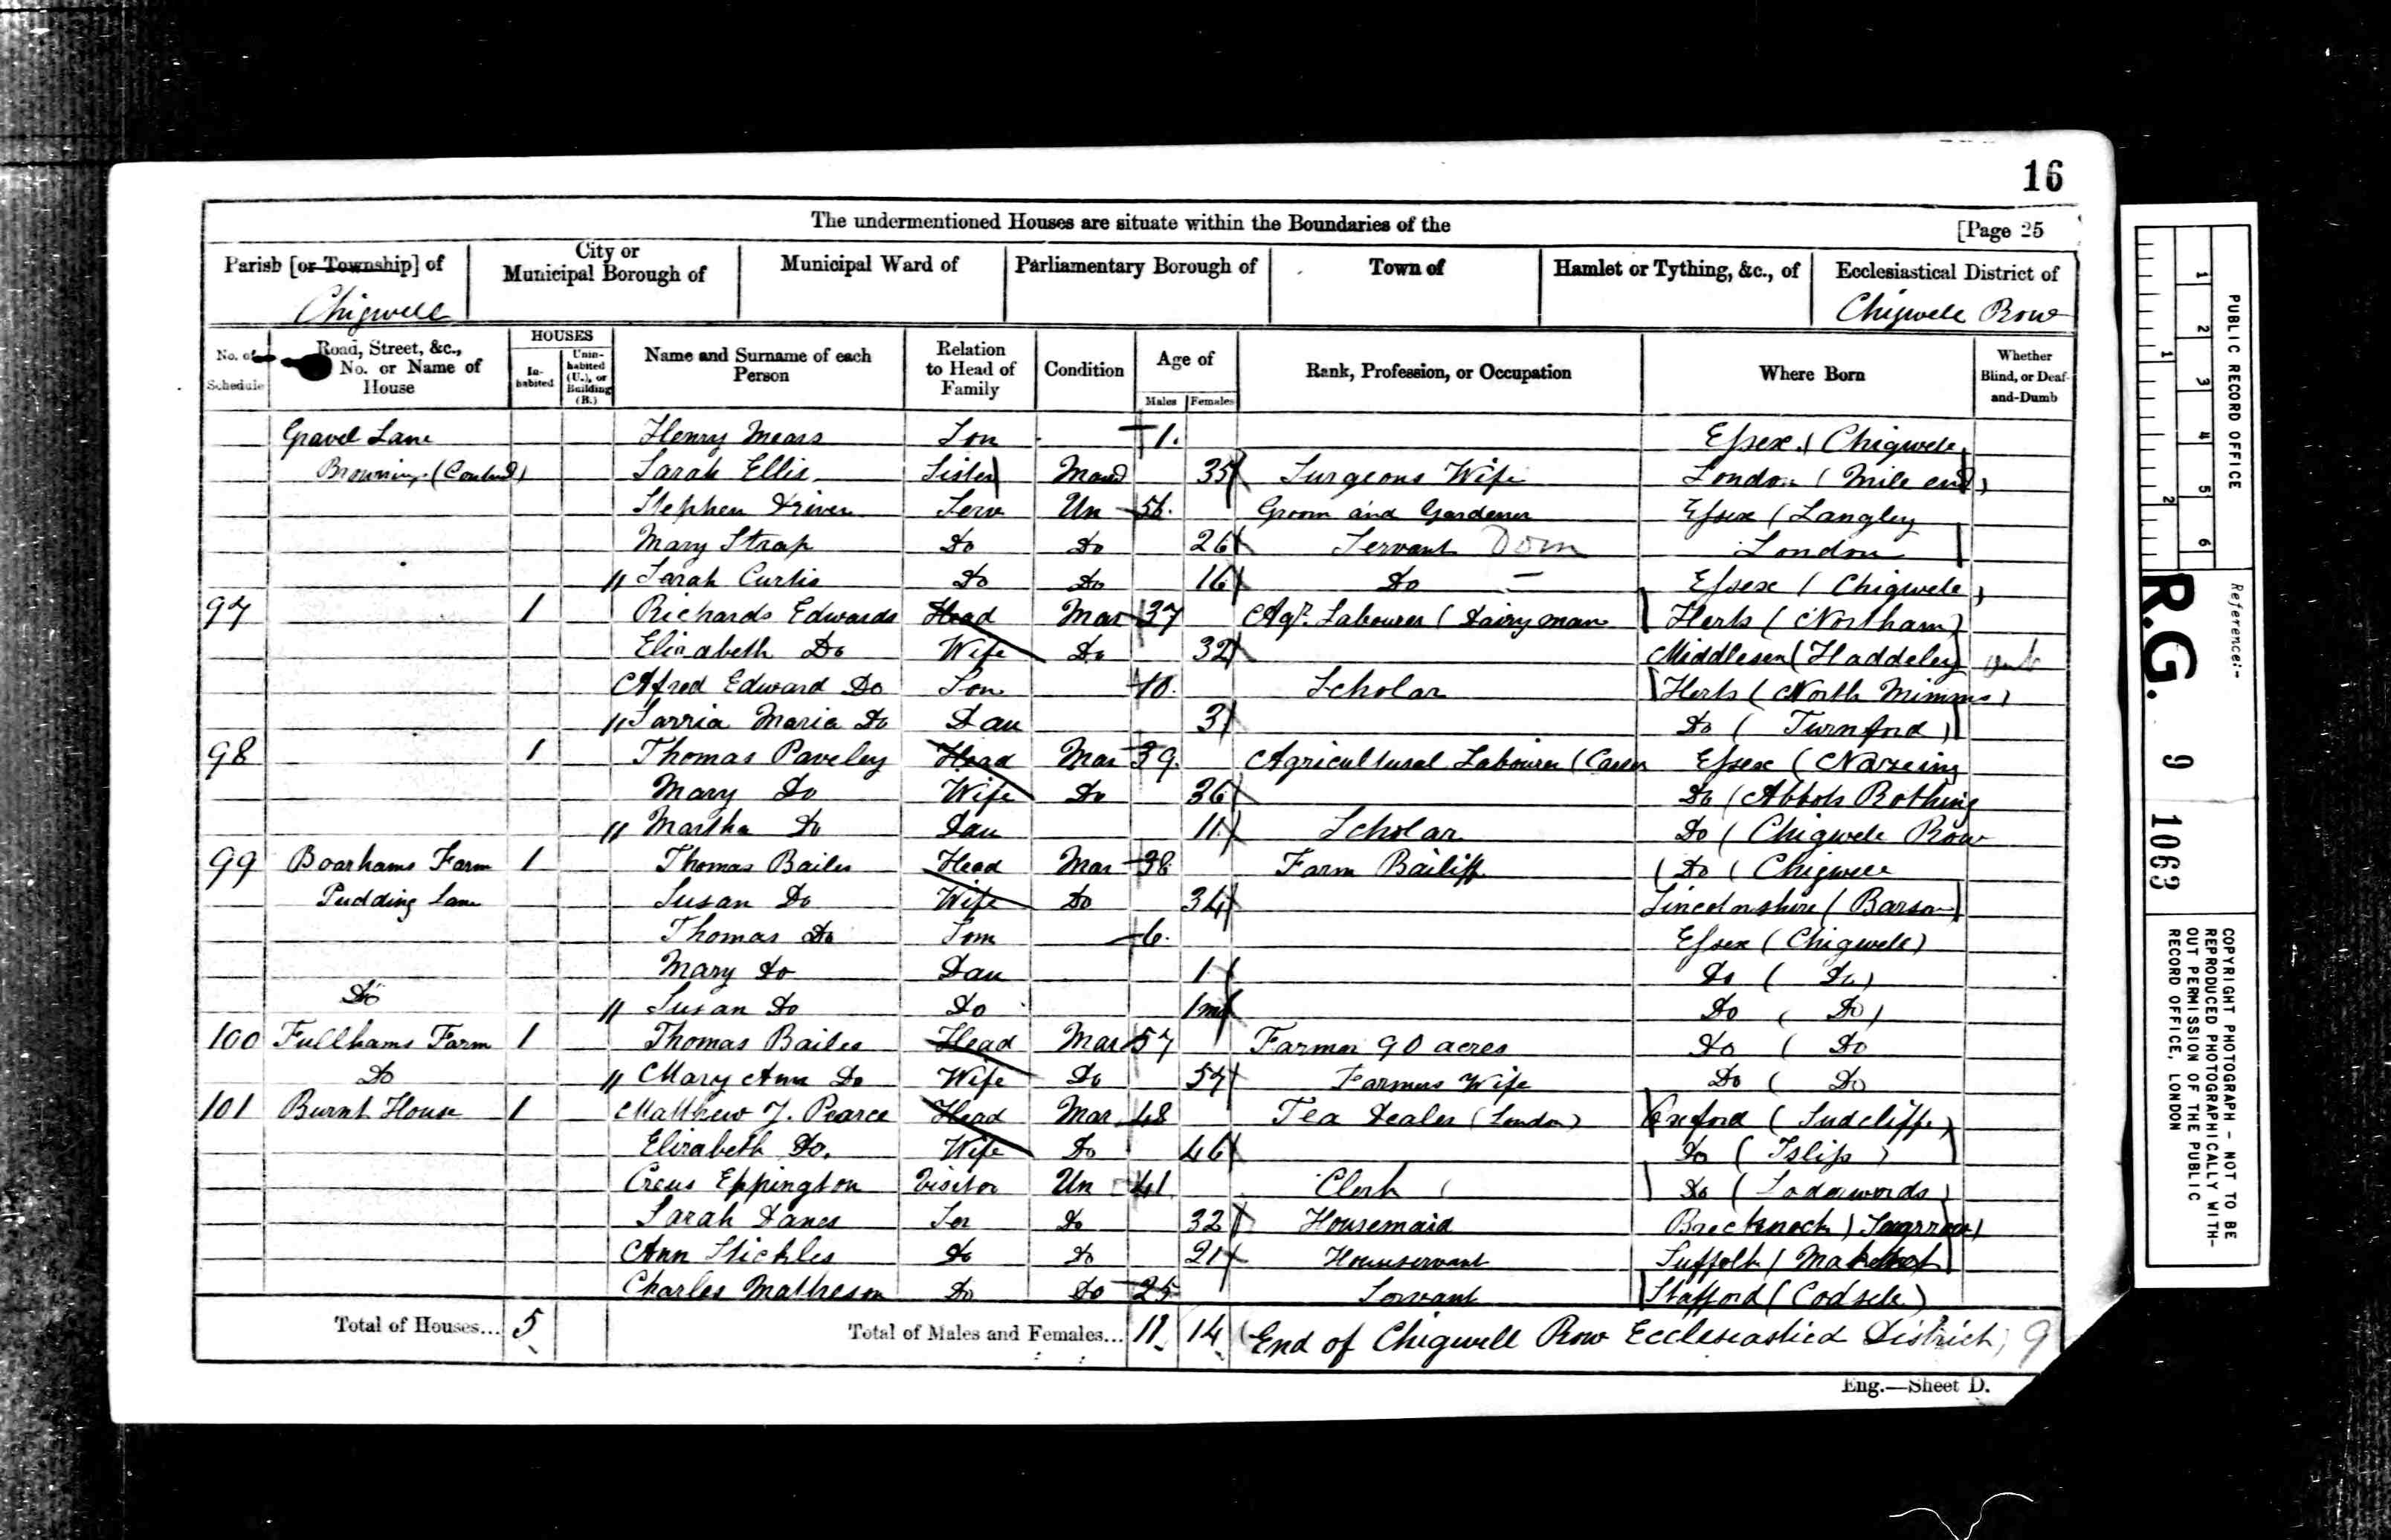 16
The undermentioned Houses are situate within the Boundaries of the [Page 25
Parish [or Township] of City or Municipal Borough of Municipal Ward of Parliamentary Borough of Town of Hamlet or Tything, &c., of Ecclesiastical District of
Chigwell Chigwell Row
No. of Schedule Road, Street, &c., No. or Name of House HOUSES In-habited Unin-habited (U.), or Building (B.) Name and Surname of each Person Relation to Head of Family Condition Age of Males Females Rank, Profession, or Occupation Where Born Whether Blind, or Deaf-and-Dumb
Gravel Lane Henry Mears Son 1 Essex (Chigwell)
Sarah Ellis Sister Mard 35 Surgeons Wife London (Mile end)
Stephen Driver Serv Un 56 Groom and Gardener Essex (Langley
Mary Strap Do Do 26 Servant Dom London
" Sarah Curtis Do Do 16 Do Essex (Chigwell)
97 1 Richards Edwards Head Mar 37 Agr. Labourer (Dairyman Herts (Northam)
Elizabeth Do Wife Do 32 Middlesex (Haddeley)
Alfred Edward Do Son 10 Scholar Herts (North Mimms)
" Sarria Maria Do Dau 3 Do (Turnford)
98 1 Thomas Paveley Head Mar 39 Agricultural Labourer Essex (Nazeing
Mary Do Wife Do 36 Do (Abbots Rothing
" Martha Do Dau 11 Scholar Do (Chigwell Row
99 Boarhams Farm 1 Thomas Bailes Head Mar 38 Farm Bailiff (Do (Chigwell
Pudding Lane Susan Do Wife Do 34 Lincolnshire
Thomas Do Son 6 Essex (Chigwell)
Mary Do Dau 1 Do (Do)
Do " Susan Do Do 1m Do (Do)
100 Fullhams Farm 1 Thomas Bailes Head Mar 57 Farmer 90 acres Do (Do
Do " Mary Ann Do Wife Do 57 Farmers Wife Do (Do
101 Burnt House 1 Matthew J. Pearce Head Mar 48 Tea Dealer (London) Oxford (Sudcliffe)
Elizabeth Do. Wife Do 46 Do (Islip)
Eppington Visitor Un 41 Clerk Do
Sarah Danes Ser Do 32 Housemaid Brecknock
Ann Stickles Do Do 21 Houseservant Suffolk
Charles Matheson Do Do 25 Servant Stafford (Codsell)
Total of Houses... 5 Total of Males and Females... 11 14 (End of Chigwell Row Eccleseastied District) 9
Eng.—Sheet D.
PUBLIC RECORD OFFICE
1 2 3 4 5 6
1 2
Reference:-
R.G. 9 1063
COPYRIGHT PHOTOGRAPH - NOT TO BE
REPRODUCED PHOTOGRAPHICALLY WITH-
OUT PERMISSION OF THE PUBLIC
RECORD OFFICE, LONDON